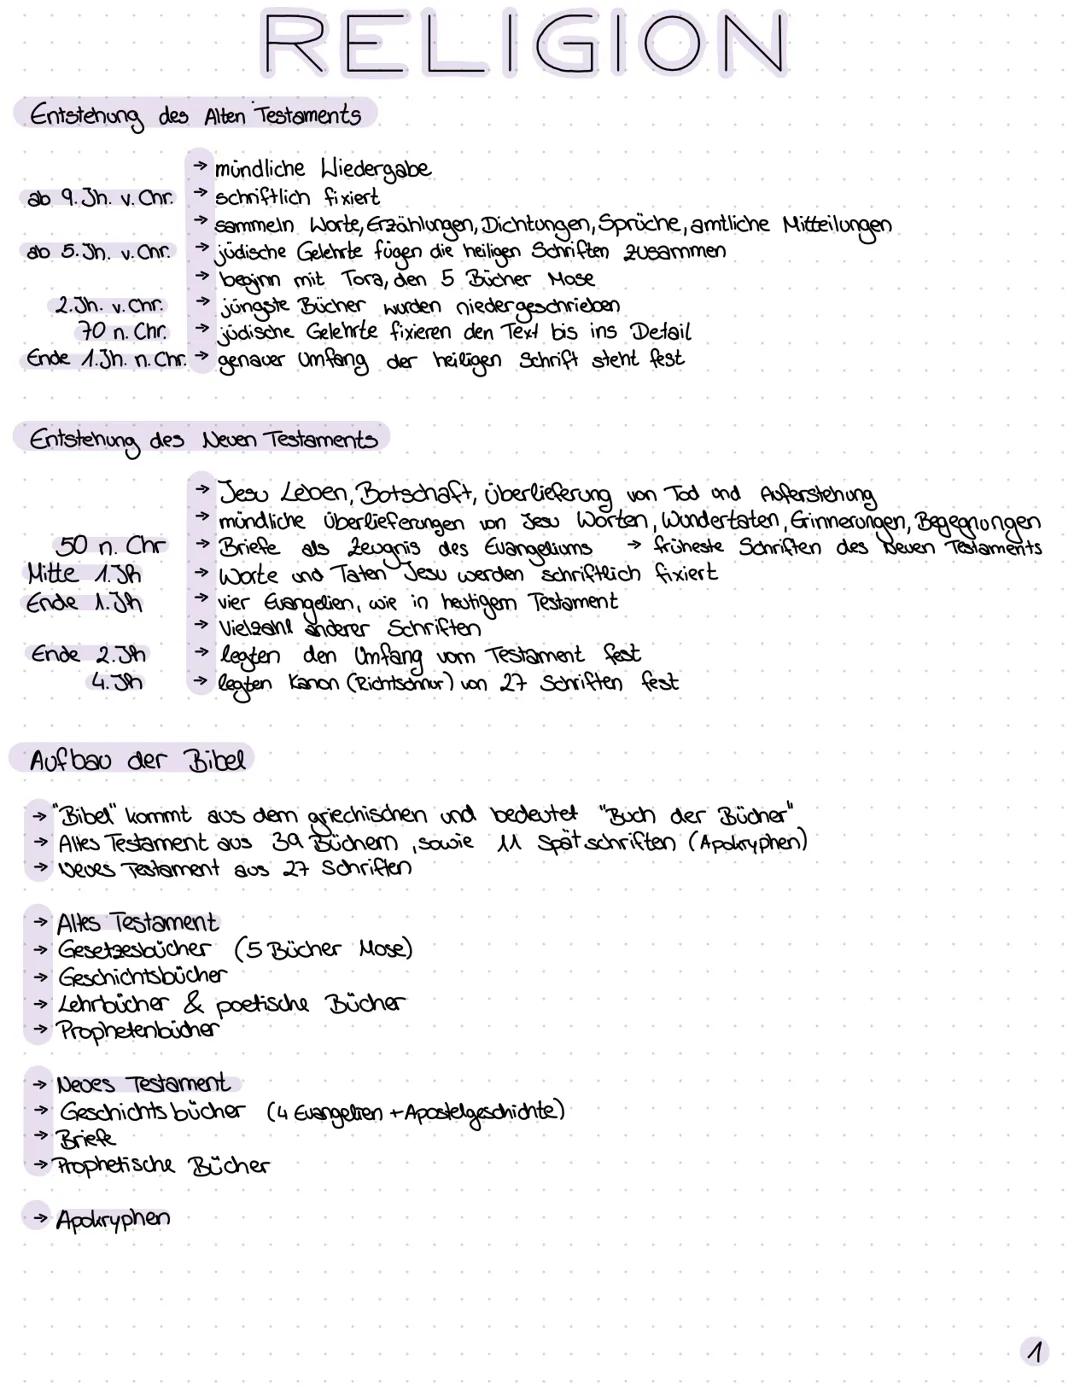 RELIGION
Entstehung des Alten Testaments
→ mündliche Wiedergabe
ab 9. Jh. v. Chr. → schriftlich fixiert
→ sammeln Worte, Erzählungen, Dichtungen, Sprüche, amtliche Mitteilungen
ab 5. Jh. v. Chr. → jüdische Gelehrte fügen die heiligen Schriften zusammen
→ beginn mit Tora, den 5 Bücher Mose
2. Jh. v. Chr. → jüngste Bücher wurden niedergeschrieben
70 n. Chr. → jüdische Gelehrte fixieren den Text bis ins Detail
Ende 1. Jh. n. Chr. → genauer Umfang der heiligen Schrift steht fest
Entstehung des Neuen Testaments
→ Jesu Leben, Botschaft, Überlieferung von Tod und Auferstehung
→ mündliche Überlieferungen von Jesu Worten, Wundertaten, Erinnerungen, Begegnungen
50 n. Chr → Briefe als Zeugnis des Evangeliums → früheste Schriften des Neuen Testaments
Mitte 1. Jh → Worte und Taten Jesu werden schriftlich fixiert
Ende 1. Jh → vier Evangelien, wie in heutigem Testament
→ Vielzahl anderer Schriften
Ende 2. Jh → legten den Umfang vom Testament fest
4. Jh → legten Kanon (Richtschnur) von 27 Schriften fest
Aufbau der Bibel
→ "Bibel" kommt aus dem griechischen und bedeutet "Buch der Bücher"
→ Altes Testament aus 39 Büchern, sowie 11 Spätschriften (Apokryphen)
→ Neues Testament aus 27 Schriften
→ Altes Testament
→ Gesetzesbücher (5 Bücher Mose)
→ Geschichtsbücher
→ Lehrbücher & poetische Bücher
→ Prophetenbücher
→ Neues Testament
→ Geschichtsbücher (4 Evangelien + Apostelgeschichte)
→ Briefe
→ Prophetische Bücher
→ Apokryphen
1